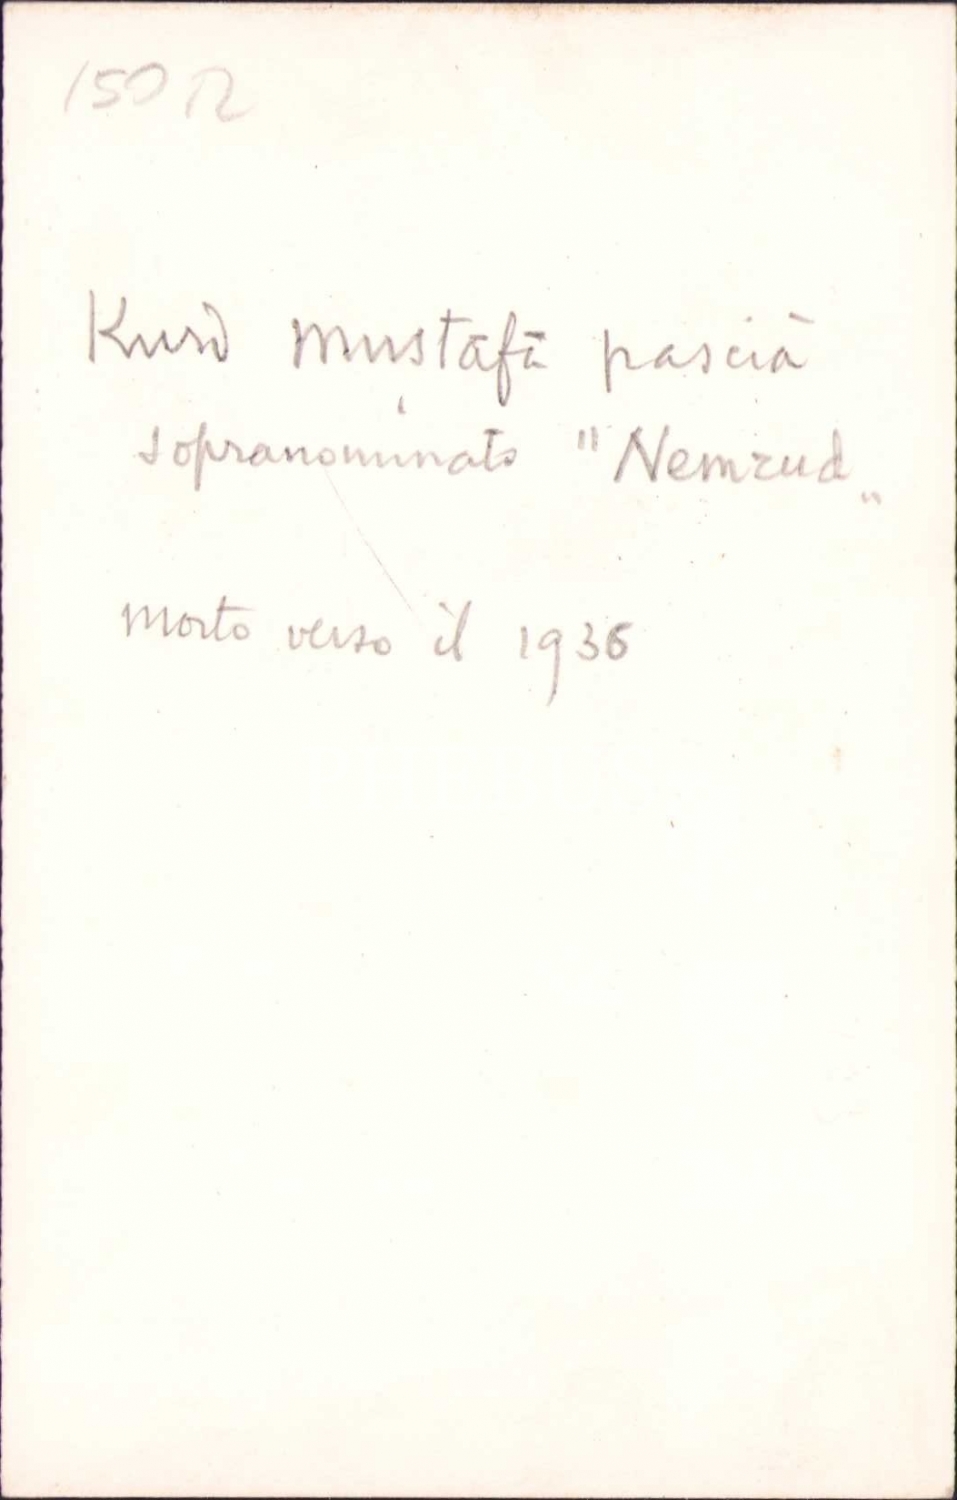 150
Kurd Mustāfā pascià
sopranominato "Nemrud"
morto verso il 1936